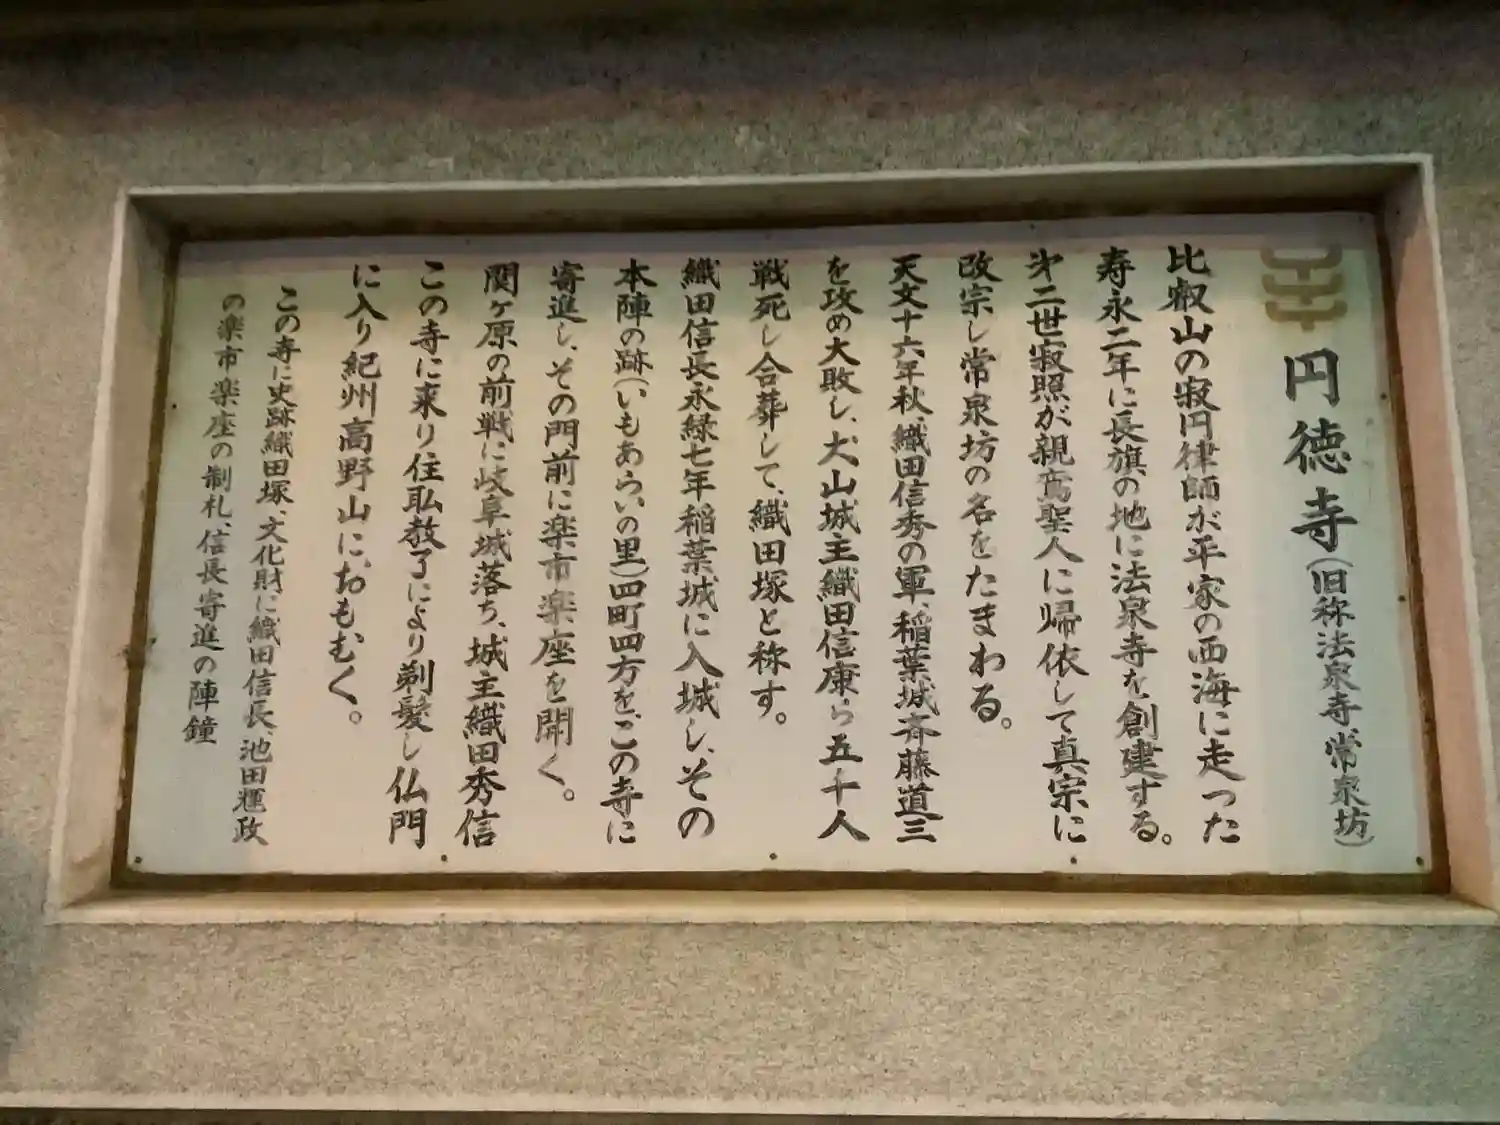 円徳寺(旧称法泉寺常泉坊)
比叡山の寂円律師が平家の西海に走った
寿永二年に長旗の地に法泉寺を創建する。
㐧二世寂照が親鸞聖人に帰依して真宗に
改宗し常泉坊の名をたまわる。
天文十六年秋、織田信秀の軍、稲葉城斉藤道三
を攻め大敗し、犬山城主織田信康ら五千人
戦死し合葬して、織田塚と称す。
織田信長永緑七年稲葉城に入城し、その
本陣の跡(いもあらいの里)四町四方を、この寺に
寄進し、その門前に楽市楽座を開く。
関ヶ原の前戦に岐阜城落ち、城主織田秀信
この寺に来り住職教了により剃髪し仏門
に入り紀州高野山に、おもむく。
この寺に史跡織田塚、文化財に織田信長、池田輝政
の楽市楽座の制札、信長寄進の陣鐘